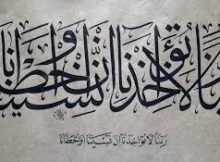 بنا لا تؤاخذنا إن نسينا أو أخطأنا
ربنا لا تؤاخذنا ان نسينا او اخطانا